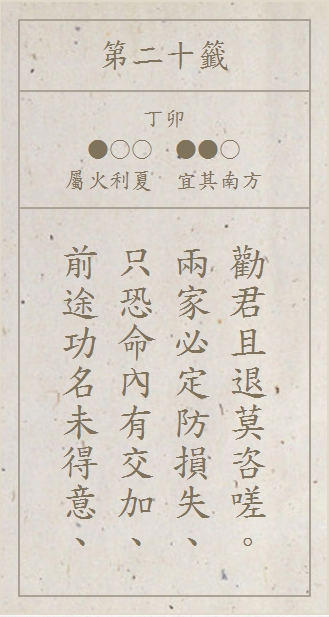 第二十籤
丁卯
●○○ ●●○
屬火利夏 宜其南方
前途功名未得意、
只恐命內有交加、
兩家必定防損失、
勸君且退莫咨嗟。